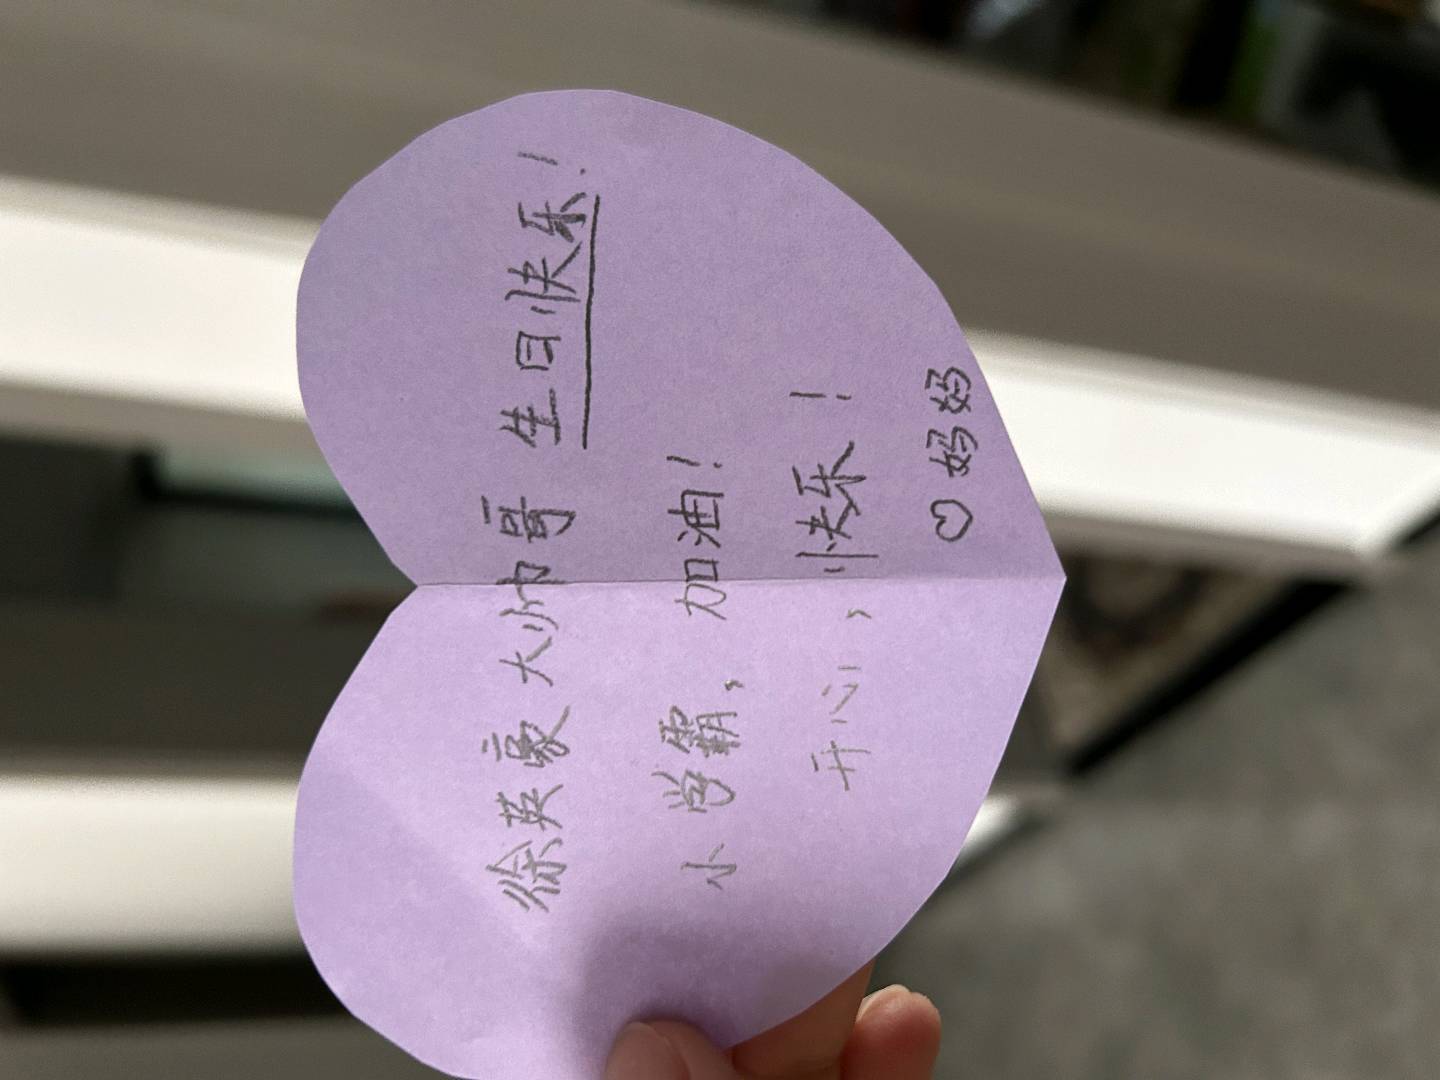 徐英豪大帅哥 生日快乐！
小学霸，加油！
开心，快乐！
♡妈妈